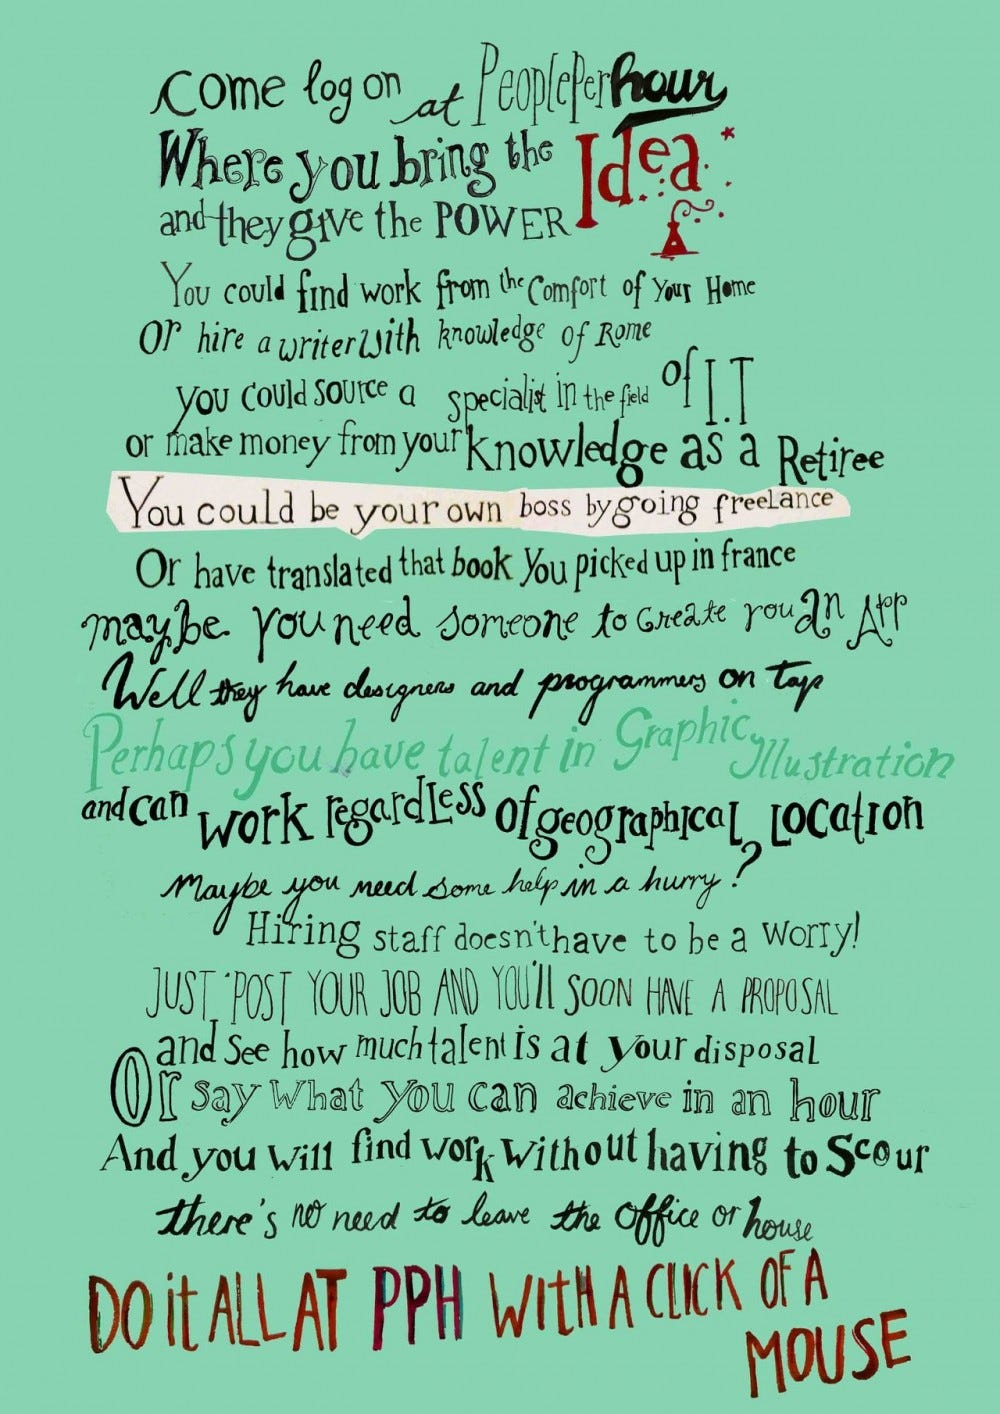 Come log on at PeoplePerhour
Where you bring the Idea
and they give the POWER
You could find work from the Comfort of Your Home
Or hire a writer with knowledge of Rome
you could source a specialist in the field of I.T
or make money from your knowledge as a Retiree
You could be your own boss by going freelance
Or have translated that book You picked up in france
maybe you need someone to create you an App
Well they have designers and programmers on tap
Perhaps you have talent in Graphic Illustration
and can work regardless of geographical location
Maybe you need some help in a hurry?
Hiring staff doesn't have to be a worry!
JUST POST YOUR JOB AND YOU'll SOON HAVE A PROPOSAL
and see how much talent is at your disposal
Or say what you can achieve in an hour
And you will find work without having to scour
there's no need to leave the office or house
DO it ALL AT PPH WITH A CLICK OF A
MOUSE